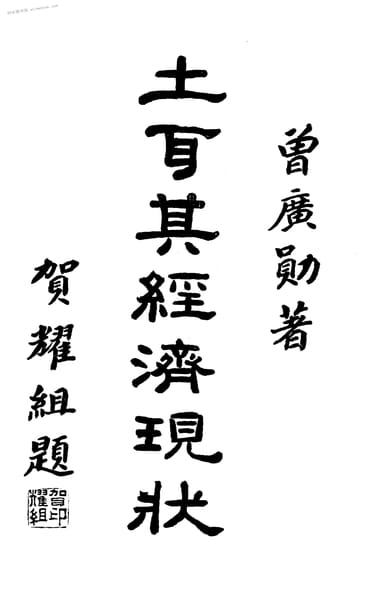 曾廣勛著
土耳其經濟現狀
賀耀組題
賀印耀組